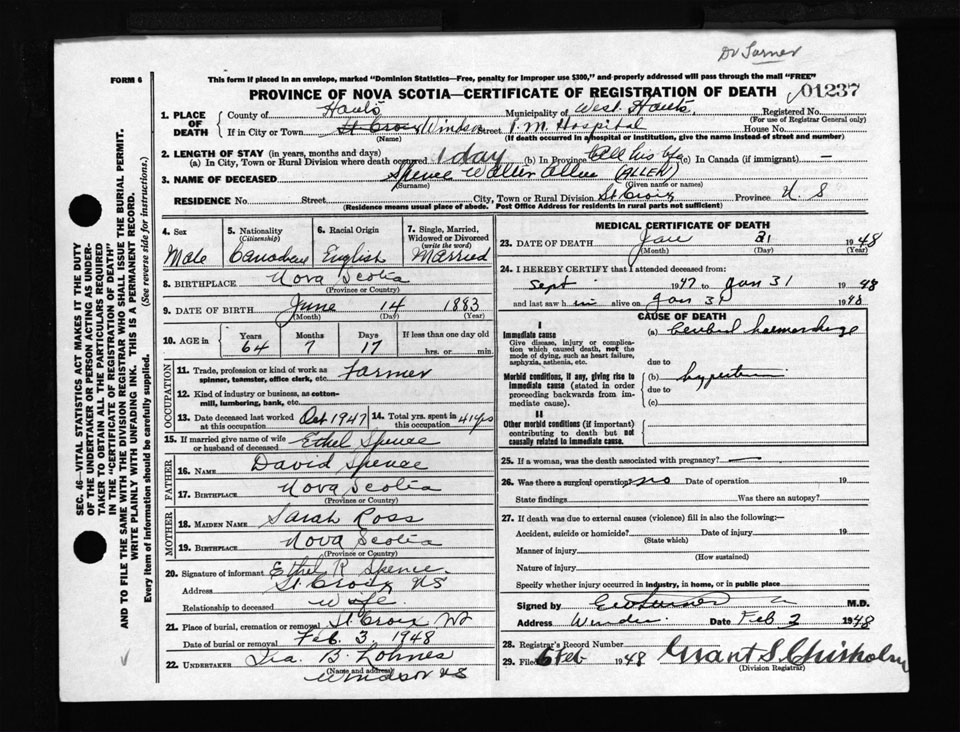 Dr Turner
FORM 6
This form if placed in an envelope, marked "Dominion Statistics—Free, penalty for improper use $300," and properly addressed will pass through the mail "FREE"
PROVINCE OF NOVA SCOTIA—CERTIFICATE OF REGISTRATION OF DEATH
01237
1. PLACE OF DEATH
County of Hants Municipality of West Hants Registered No.
(For use of Registrar General only)
If in City or Town St Croix Windsor Street P.M. Hospital House No.
(Name) (If death occurred in a hospital or institution, give the name instead of street and number)
2. LENGTH OF STAY (in years, months and days)
(a) In City, Town or Rural Division where death occurred 1 day (b) In Province All his life (c) In Canada (if immigrant) —
3. NAME OF DECEASED Spence Walter Allen (ALLEN)
(Surname) (Given name or names)
RESIDENCE No. Street City, Town or Rural Division St Croix Province N S
(Residence means usual place of abode. Post Office Address for residents in rural parts not sufficient)
4. Sex Male
5. Nationality (Citizenship) Canadian
6. Racial Origin English
7. Single, Married, Widowed or Divorced (write the word) Married
8. BIRTHPLACE Nova Scotia
(Province or Country)
9. DATE OF BIRTH June 14 1883
(Month) (Day) (Year)
10. AGE in Years Months Days If less than one day old
64 7 17 hrs. or min.
OCCUPATION
11. Trade, profession or kind of work as spinner, teamster, office clerk, etc. Farmer
12. Kind of industry or business, as cotton-mill, lumbering, bank, etc.
13. Date deceased last worked at this occupation Oct 1947
14. Total yrs. spent in this occupation 41 yrs
15. If married give name of wife or husband of deceased Ethel Spence
FATHER
16. NAME David Spence
17. BIRTHPLACE Nova Scotia
(Province or Country)
MOTHER
18. MAIDEN NAME Sarah Ross
19. BIRTHPLACE Nova Scotia
(Province or Country)
20. Signature of informant Ethel R Spence
Address St. Croix NS
Relationship to deceased Wife
21. Place of burial, cremation or removal St. Croix NS
Date of burial or removal Feb. 3, 1948
22. UNDERTAKER Ira B. Lohnes
(Name and address)
Windsor NS
MEDICAL CERTIFICATE OF DEATH
23. DATE OF DEATH Jan 31 1948
(Month) (Day) (Year)
24. I HEREBY CERTIFY that I attended deceased from
Sept 1947 to Jan 31 1948
and last saw him alive on Jan 31 1948
CAUSE OF DEATH
I
Immediate cause
Give disease, injury or complication which caused death, not the mode of dying, such as heart failure, asphyxia, asthenia, etc.
(a) Cerebral haemorrhage
due to
Morbid conditions, if any, giving rise to immediate cause (stated in order proceeding backwards from immediate cause).
(b) hypertension
due to
(c)
II
Other morbid conditions (if important) contributing to death but not causally related to immediate cause.
25. If a woman, was the death associated with pregnancy? —
26. Was there a surgical operation? no Date of operation 19
State findings Was there an autopsy?
27. If death was due to external causes (violence) fill in also the following:—
Accident, suicide or homicide? Date of injury 19
(State which)
Manner of injury
(How sustained)
Nature of injury
Specify whether injury occurred in industry, in home, or in public place
Signed by M.D.
Address Windsor Date Feb 2 1948
28. Registrar's Record Number
29. Filed 6 Feb 1948 Grant S. Chisholm
(Division Registrar)
SEC. 46—VITAL STATISTICS ACT MAKES IT THE DUTY
OF THE UNDERTAKER OR PERSON ACTING AS UNDERTAKER TO OBTAIN ALL THE PARTICULARS REQUIRED
IN THE "CERTIFICATE OF REGISTRATION OF DEATH"
AND TO FILE THE SAME WITH THE DIVISION REGISTRAR WHO SHALL ISSUE THE BURIAL PERMIT.
WRITE PLAINLY WITH UNFADING INK. THIS IS A PERMANENT RECORD.
Every item of information should be carefully supplied. (See reverse side for instructions.)